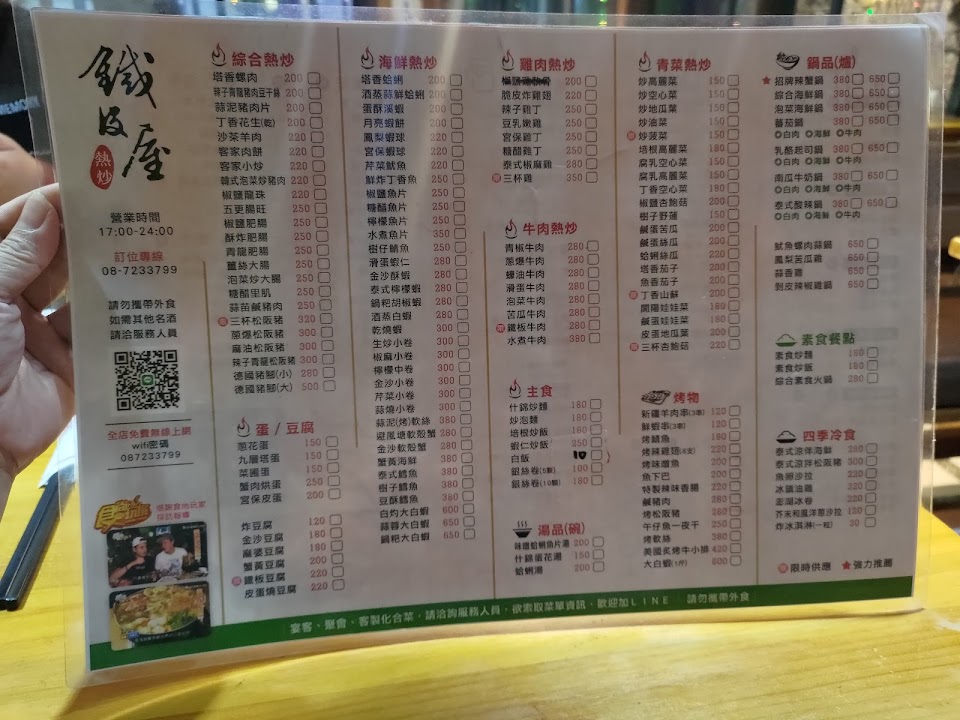 鐵皮屋
熱炒
營業時間
17:00-24:00
訂位專線
08-7233799
請勿攜帶外食
如需其他名酒
請洽服務人員
全店免費無線上網
wifi密碼
087233799
綜合熱炒
塔香螺肉 200
辣子青龍豬肉豆干絲 200
蒜泥豬肉片 200
丁香花生(乾) 200
沙茶羊肉 220
客家肉餅 220
客家小炒 220
韓式泡菜炒豬肉 220
椒鹽龍珠 220
五更腸旺 250
椒鹽肥腸 250
酥炸肥腸 250
青龍肥腸 250
薑絲大腸 250
泡菜炒大腸 250
糖醋里肌 250
蒜苗鹹豬肉 250
三杯松阪豬 320
蔥爆松阪豬 300
麻油松阪豬 300
辣子青龍松阪豬 300
德國豬腳(小) 280
德國豬腳(大) 500
蛋/豆腐
蔥花蛋 150
九層塔蛋 150
菜圃蛋 150
蟹肉烘蛋 200
宮保皮蛋 200
炸豆腐 120
金沙豆腐 180
麻婆豆腐 180
蟹黃豆腐 200
鐵板豆腐 220
皮蛋燒豆腐 220
海鮮熱炒
塔香蛤蜊 200
酒蒸蒜鮮蛤蜊 200
蛋酥溪蝦 200
月亮蝦餅 200
鳳梨蝦球 220
宮保蝦球 220
芹菜魷魚 220
鮮炸丁香魚 250
椒鹽魚片 250
糖醋魚片 250
檸檬魚片 250
水煮魚片 350
樹仔鯃魚 250
滑蛋蝦仁 280
金沙酥蝦 280
泰式檸檬蝦 280
鍋粑胡椒蝦 280
酒蒸白蝦 280
乾燒蝦 280
生炒小卷 300
椒麻小卷 300
檸檬中卷 300
金沙小卷 300
芹菜小卷 300
蒜燒小卷 300
蒜泥(烤)軟絲 380
避風塘軟殼蟹 280
金沙軟殼蟹 280
蟹黃海鮮 380
泰式鱈魚 380
樹子鱈魚 380
豆酥鱈魚 380
白灼大白蝦 600
蒜蓉大白蝦 650
鍋粑大白蝦 650
雞肉熱炒
200
脆皮炸雞翅 220
辣子雞丁 250
豆乳嫩雞 250
宮保雞丁 250
糖醋雞丁 250
泰式椒麻雞 280
三杯雞 350
牛肉熱炒
青椒牛肉 280
蔥爆牛肉 280
蠔油牛肉 280
滑蛋牛肉 280
泡菜牛肉 280
苦瓜牛肉 280
鐵板牛肉 320
水煮牛肉 380
主食
什錦炒麵 180
炒泡麵 180
培根炒飯 180
蝦仁炒飯 250
白飯 10
銀絲卷(5顆) 100
銀絲卷(10顆) 180
湯品(碗)
味噌蛤蜊魚片湯 200
什錦蛋花湯 150
蛤蜊湯 200
青菜熱炒
炒高麗菜 150
炒空心菜 150
炒地瓜葉 150
炒油菜 150
炒菠菜 150
培根高麗菜 180
腐乳空心菜 180
腐乳高麗菜 180
丁香空心菜 180
椒鹽杏鮑菇 200
樹子野蓮 180
鹹蛋苦瓜 200
鹹蛋絲瓜 200
蛤蜊絲瓜 200
塔香茄子 200
魚香茄子 200
丁香山蘇 200
開陽娃娃菜 180
鹹蛋娃娃菜 200
皮蛋地瓜葉 200
三杯杏鮑菇 220
烤物
新疆羊肉串(3串) 120
鮮蝦串(3串) 120
烤鯖魚 180
烤辣雞翅(6支) 220
烤味噌魚 200
魚下巴 200
特製辣味香腸 220
鹹豬肉 280
烤松阪豬 260
午仔魚一夜干 250
烤軟絲 380
美國炙烤牛小排 420
大白蝦(1斤) 600
鍋品(爐)
招牌辣蟹鍋 380 650
綜合海鮮鍋 380 650
泡菜海鮮鍋 380 650
番茄鍋 380 650
白肉 海鮮 牛肉
乳酪起司鍋 380 650
白肉 海鮮 牛肉
南瓜牛奶鍋 380 650
白肉 海鮮 牛肉
泰式酸辣鍋 380 650
白肉 海鮮 牛肉
魷魚螺肉蒜鍋 650
鳳梨苦瓜雞 650
蒜香雞 650
剝皮辣椒雞鍋 650
素食餐點
素食炒麵 180
素食炒飯 180
綜合素食火鍋 280
四季冷食
泰式涼伴海鮮 280
泰式涼拌松阪豬 300
魚卵沙拉 220
冰鎮油雞 220
澎湖冰卷 200
芥末和風洋蔥沙拉 130
炸冰淇淋(一粒) 30
限時供應 強力推薦
宴客、聚會、客製化合菜，請洽詢服務人員，欲索取菜單資訊，歡迎加LINE 請勿攜帶外食